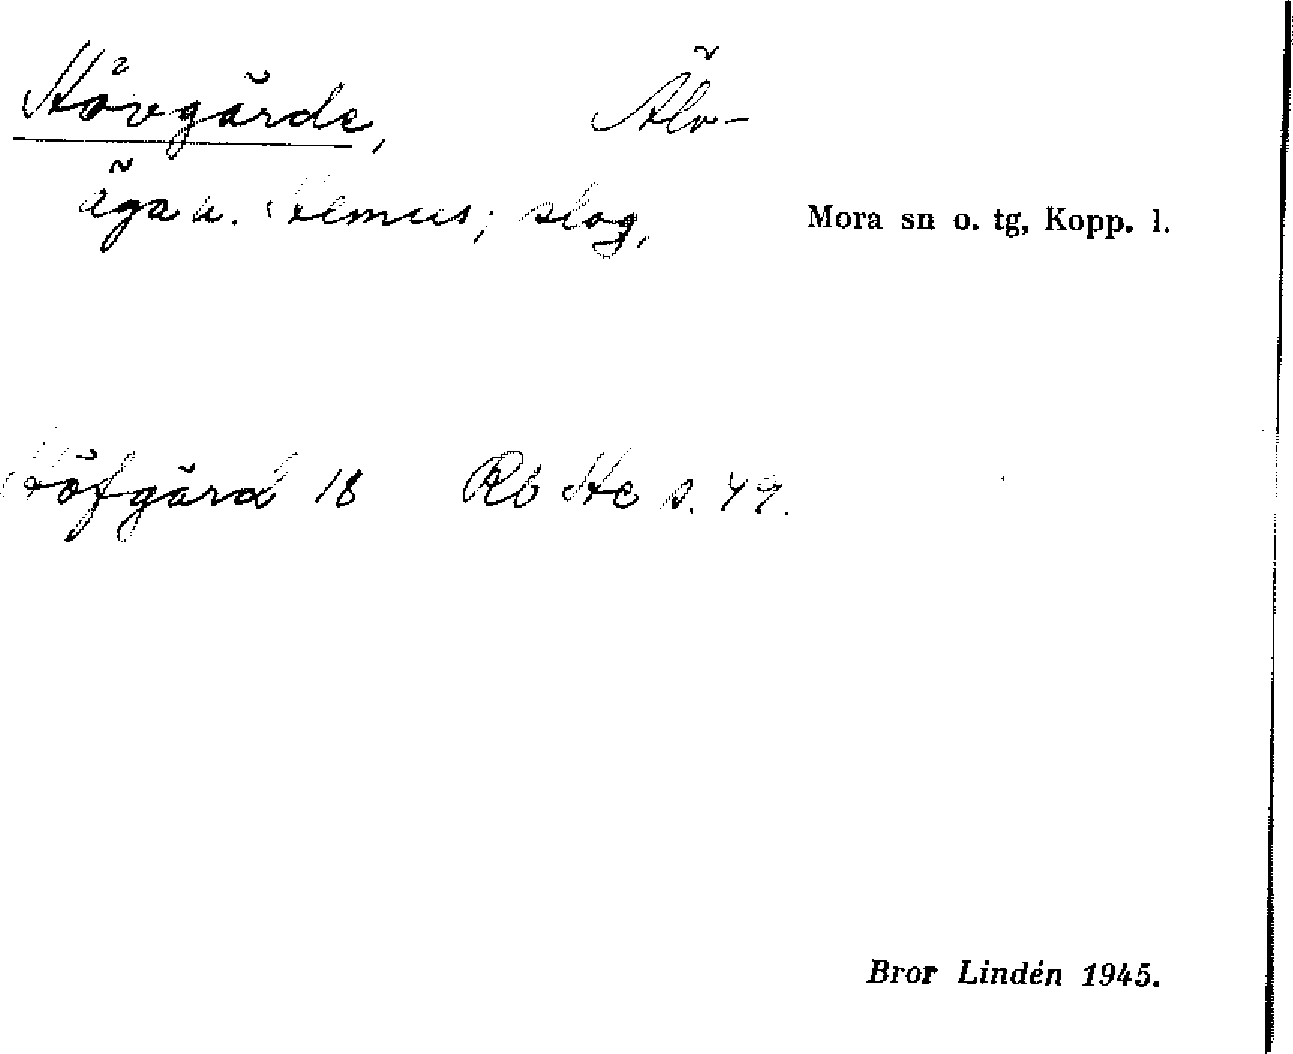 Hövgärde, Älv-
äga u. Hemus; slog,
Mora sn o. tg, Kopp. l.
Höfgärd 18 Rb He s. 49.
Bror Lindén 1945.